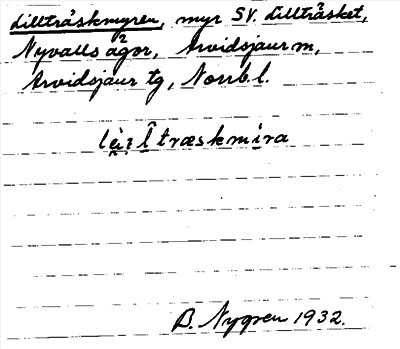 Lillträskmyren, myr SV. Lillträsket,
Nyvalls ägor, Arvidsjaur m,
Arvidsjaur tg, Norrb l.
træskmira
B. Nygren 1932.